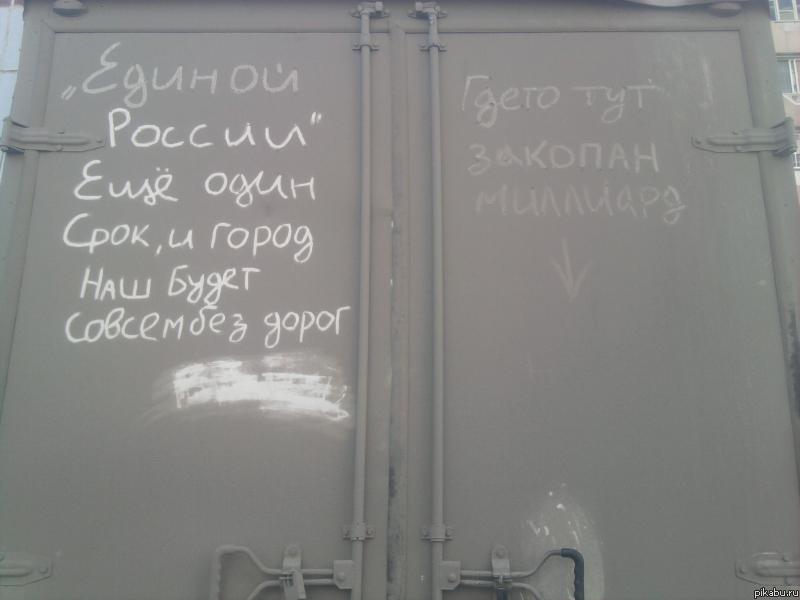 „Единой
России“
Ещё один
Срок, и город
наш будет
совсем без дорог
Гдето тут
закопан
миллиард
pikabu.ru